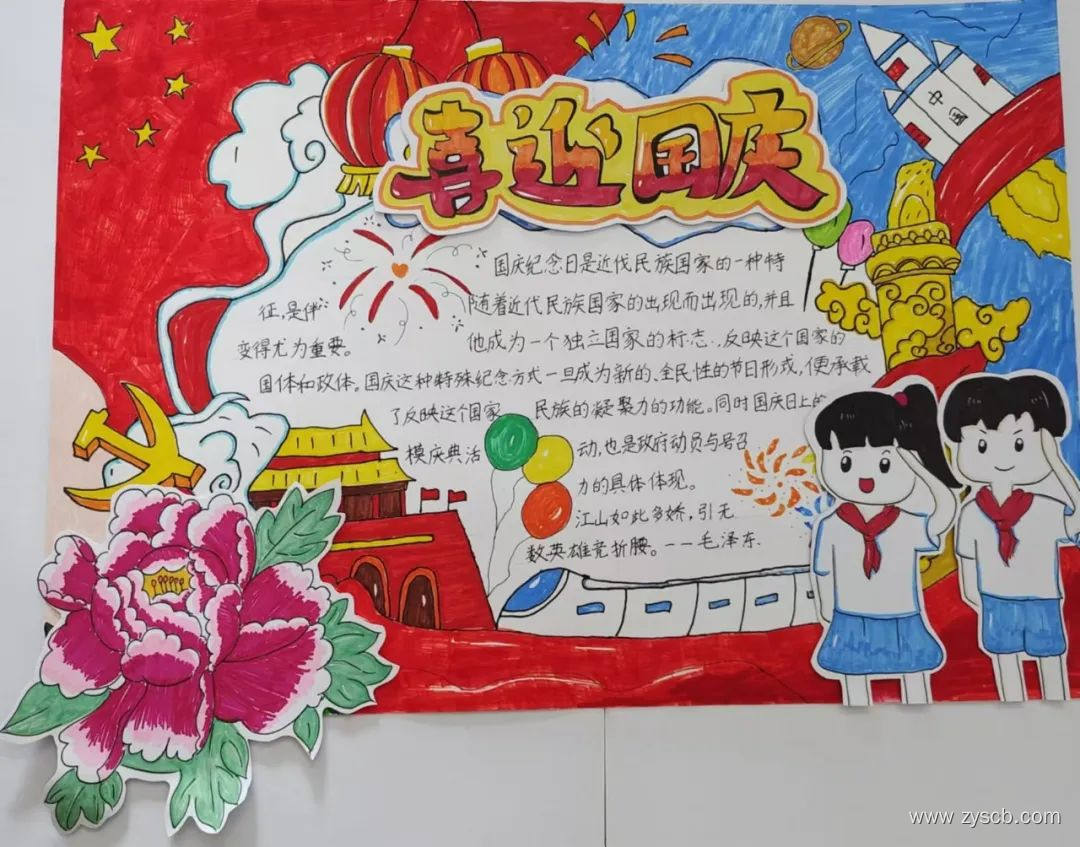 喜迎国庆
中国
国庆纪念日是近代民族国家的一种特
征,是伴随着近代民族国家的出现而出现的,并且
变得尤为重要。他成为一个独立国家的标志.,反映这个国家的
国体和政体。国庆这种特殊纪念方式一旦成为新的、全民性的节日形式,便承载
了反映这个国家 民族的凝聚力的功能。同时国庆日上的
模庆典活 动,也是政府动员与号召
力的具体体现。
江山如此多娇,引无
数英雄竞折腰。——毛泽东
www.zyscb.com